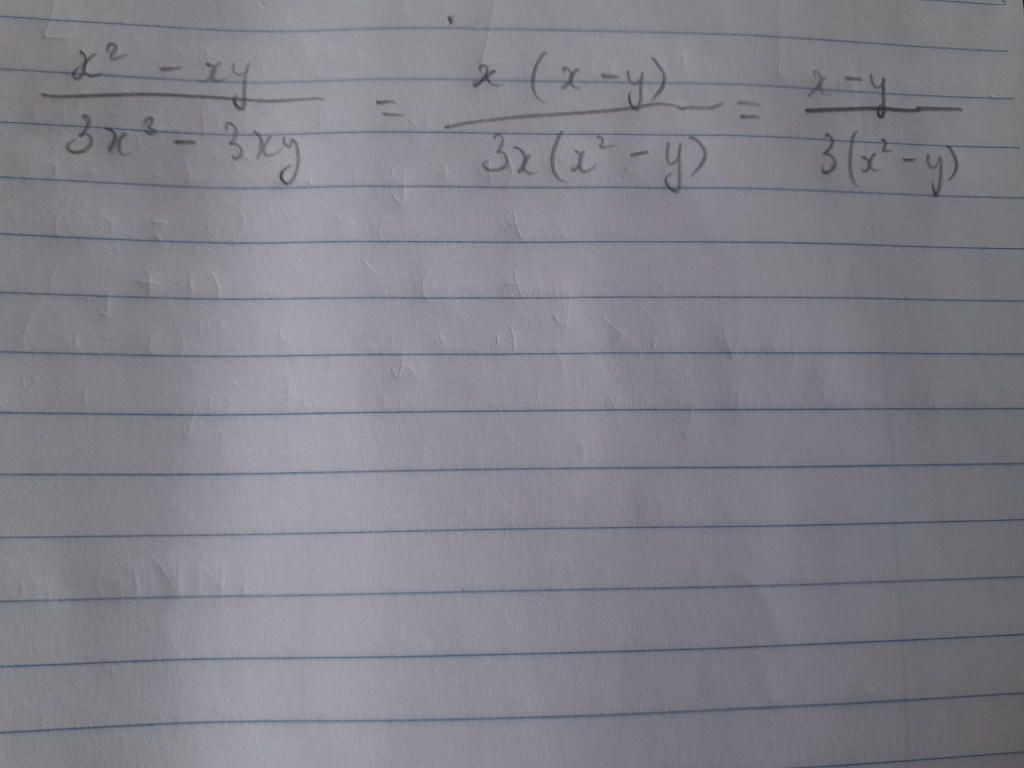 x² - xy / 3x³ - 3xy = x (x - y) / 3x(x² - y) = x - y / 3(x² - y)